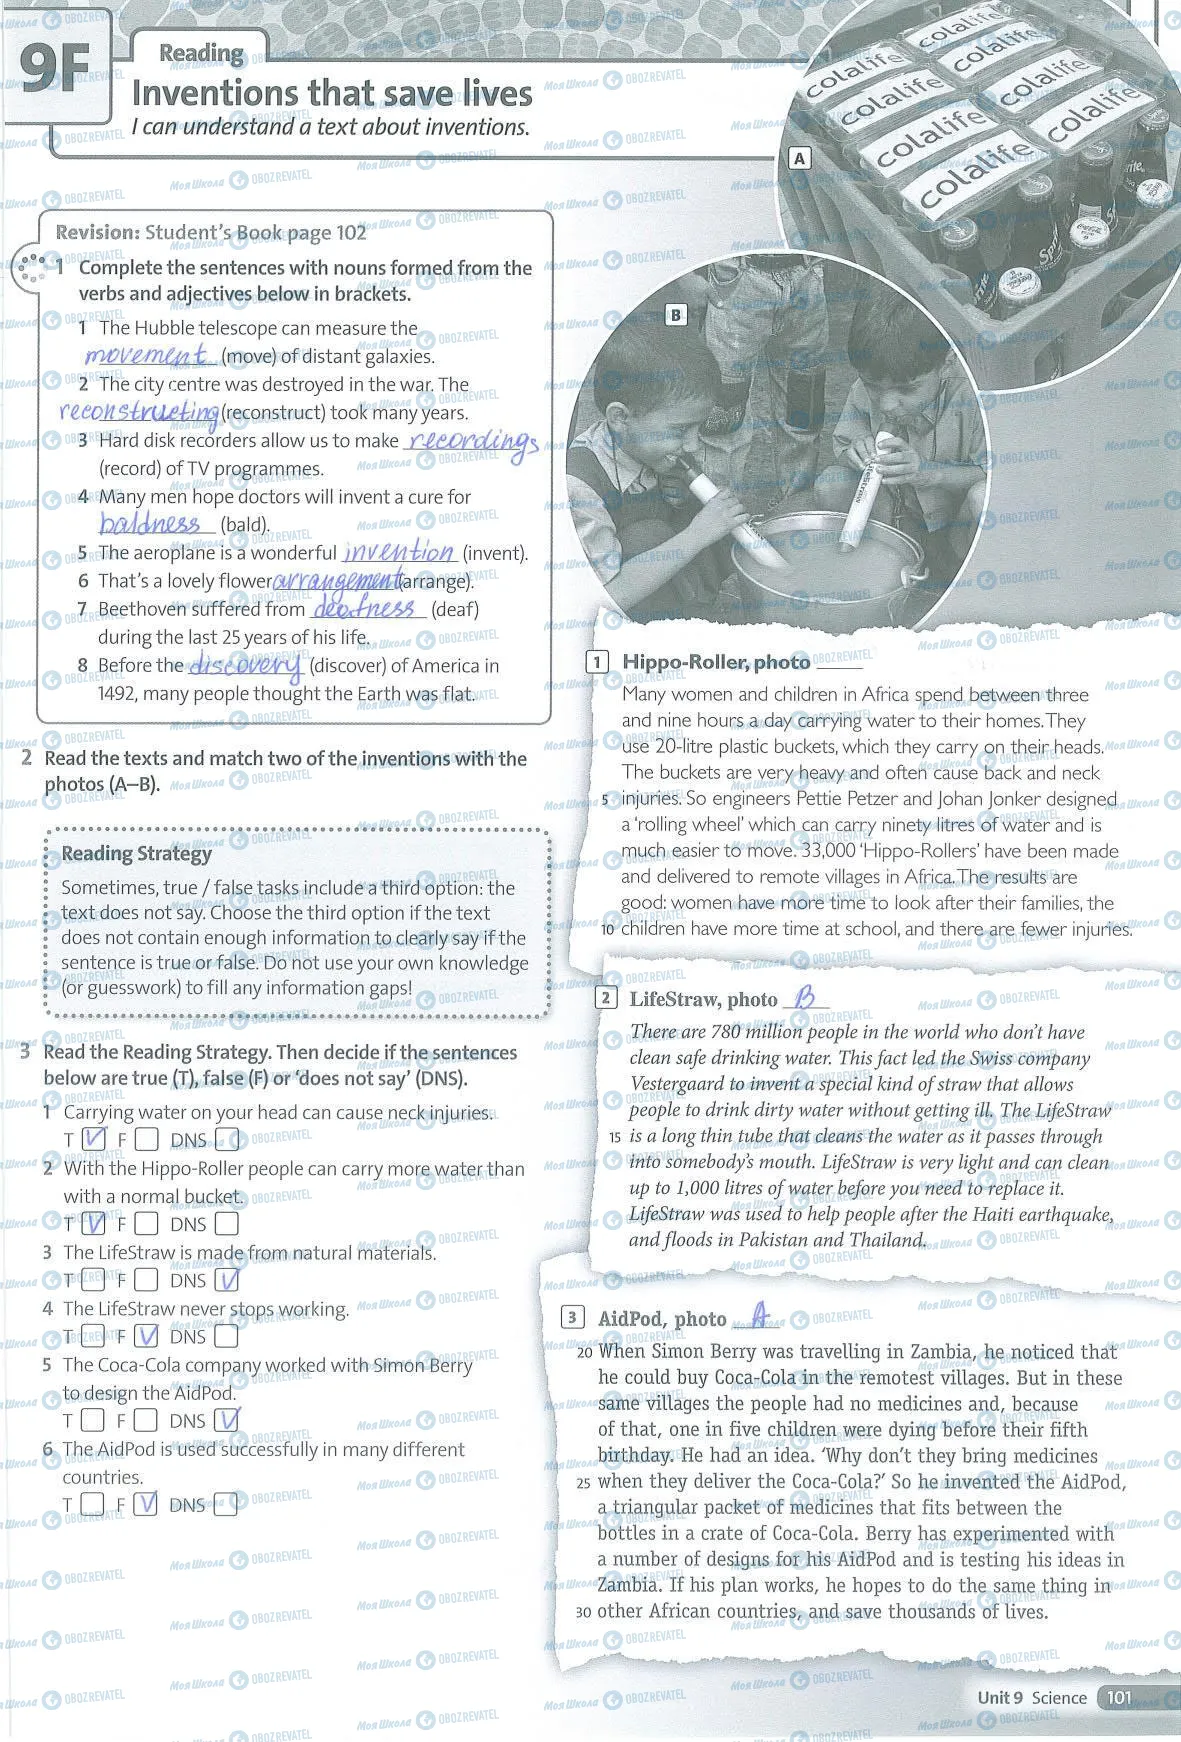 9F
Reading
Inventions that save lives
I can understand a text about inventions.
Revision: Student's Book page 102
1 Complete the sentences with nouns formed from the
verbs and adjectives below in brackets.
1 The Hubble telescope can measure the
movement (move) of distant galaxies.
2 The city centre was destroyed in the war. The
reconstructing (reconstruct) took many years.
3 Hard disk recorders allow us to make recordings
(record) of TV programmes.
4 Many men hope doctors will invent a cure for
baldness (bald).
5 The aeroplane is a wonderful invention (invent).
6 That's a lovely flower arrangement (arrange).
7 Beethoven suffered from deafness (deaf)
during the last 25 years of his life.
8 Before the discovery (discover) of America in
1492, many people thought the Earth was flat.
2 Read the texts and match two of the inventions with the
photos (A–B).
Reading Strategy
Sometimes, true / false tasks include a third option: the
text does not say. Choose the third option if the text
does not contain enough information to clearly say if the
sentence is true or false. Do not use your own knowledge
(or guesswork) to fill any information gaps!
3 Read the Reading Strategy. Then decide if the sentences
below are true (T), false (F) or 'does not say' (DNS).
1 Carrying water on your head can cause neck injuries.
T V F DNS
2 With the Hippo-Roller people can carry more water than
with a normal bucket.
T V F DNS
3 The LifeStraw is made from natural materials.
T F DNS V
4 The LifeStraw never stops working.
T F V DNS
5 The Coca-Cola company worked with Simon Berry
to design the AidPod.
T F DNS V
6 The AidPod is used successfully in many different
countries.
T F V DNS
A
colalife
colalife
colalife
colalife
colalife
colalife
colalife
colalife
Sprite
B
LifeStraw
1 Hippo-Roller, photo
Many women and children in Africa spend between three
and nine hours a day carrying water to their homes. They
use 20-litre plastic buckets, which they carry on their heads.
The buckets are very heavy and often cause back and neck
5 injuries. So engineers Pettie Petzer and Johan Jonker designed
a 'rolling wheel' which can carry ninety litres of water and is
much easier to move. 33,000 'Hippo-Rollers' have been made
and delivered to remote villages in Africa. The results are
good: women have more time to look after their families, the
10 children have more time at school, and there are fewer injuries.
2 LifeStraw, photo B
There are 780 million people in the world who don't have
clean safe drinking water. This fact led the Swiss company
Vestergaard to invent a special kind of straw that allows
people to drink dirty water without getting ill. The LifeStraw
15 is a long thin tube that cleans the water as it passes through
into somebody's mouth. LifeStraw is very light and can clean
up to 1,000 litres of water before you need to replace it.
LifeStraw was used to help people after the Haiti earthquake,
and floods in Pakistan and Thailand.
3 AidPod, photo A
20 When Simon Berry was travelling in Zambia, he noticed that
he could buy Coca-Cola in the remotest villages. But in these
same villages the people had no medicines and, because
of that, one in five children were dying before their fifth
birthday. He had an idea. 'Why don't they bring medicines
25 when they deliver the Coca-Cola?' So he invented the AidPod,
a triangular packet of medicines that fits between the
bottles in a crate of Coca-Cola. Berry has experimented with
a number of designs for his AidPod and is testing his ideas in
Zambia. If his plan works, he hopes to do the same thing in
30 other African countries, and save thousands of lives.
Unit 9 Science 101
Моя Школа OBOZREVATEL